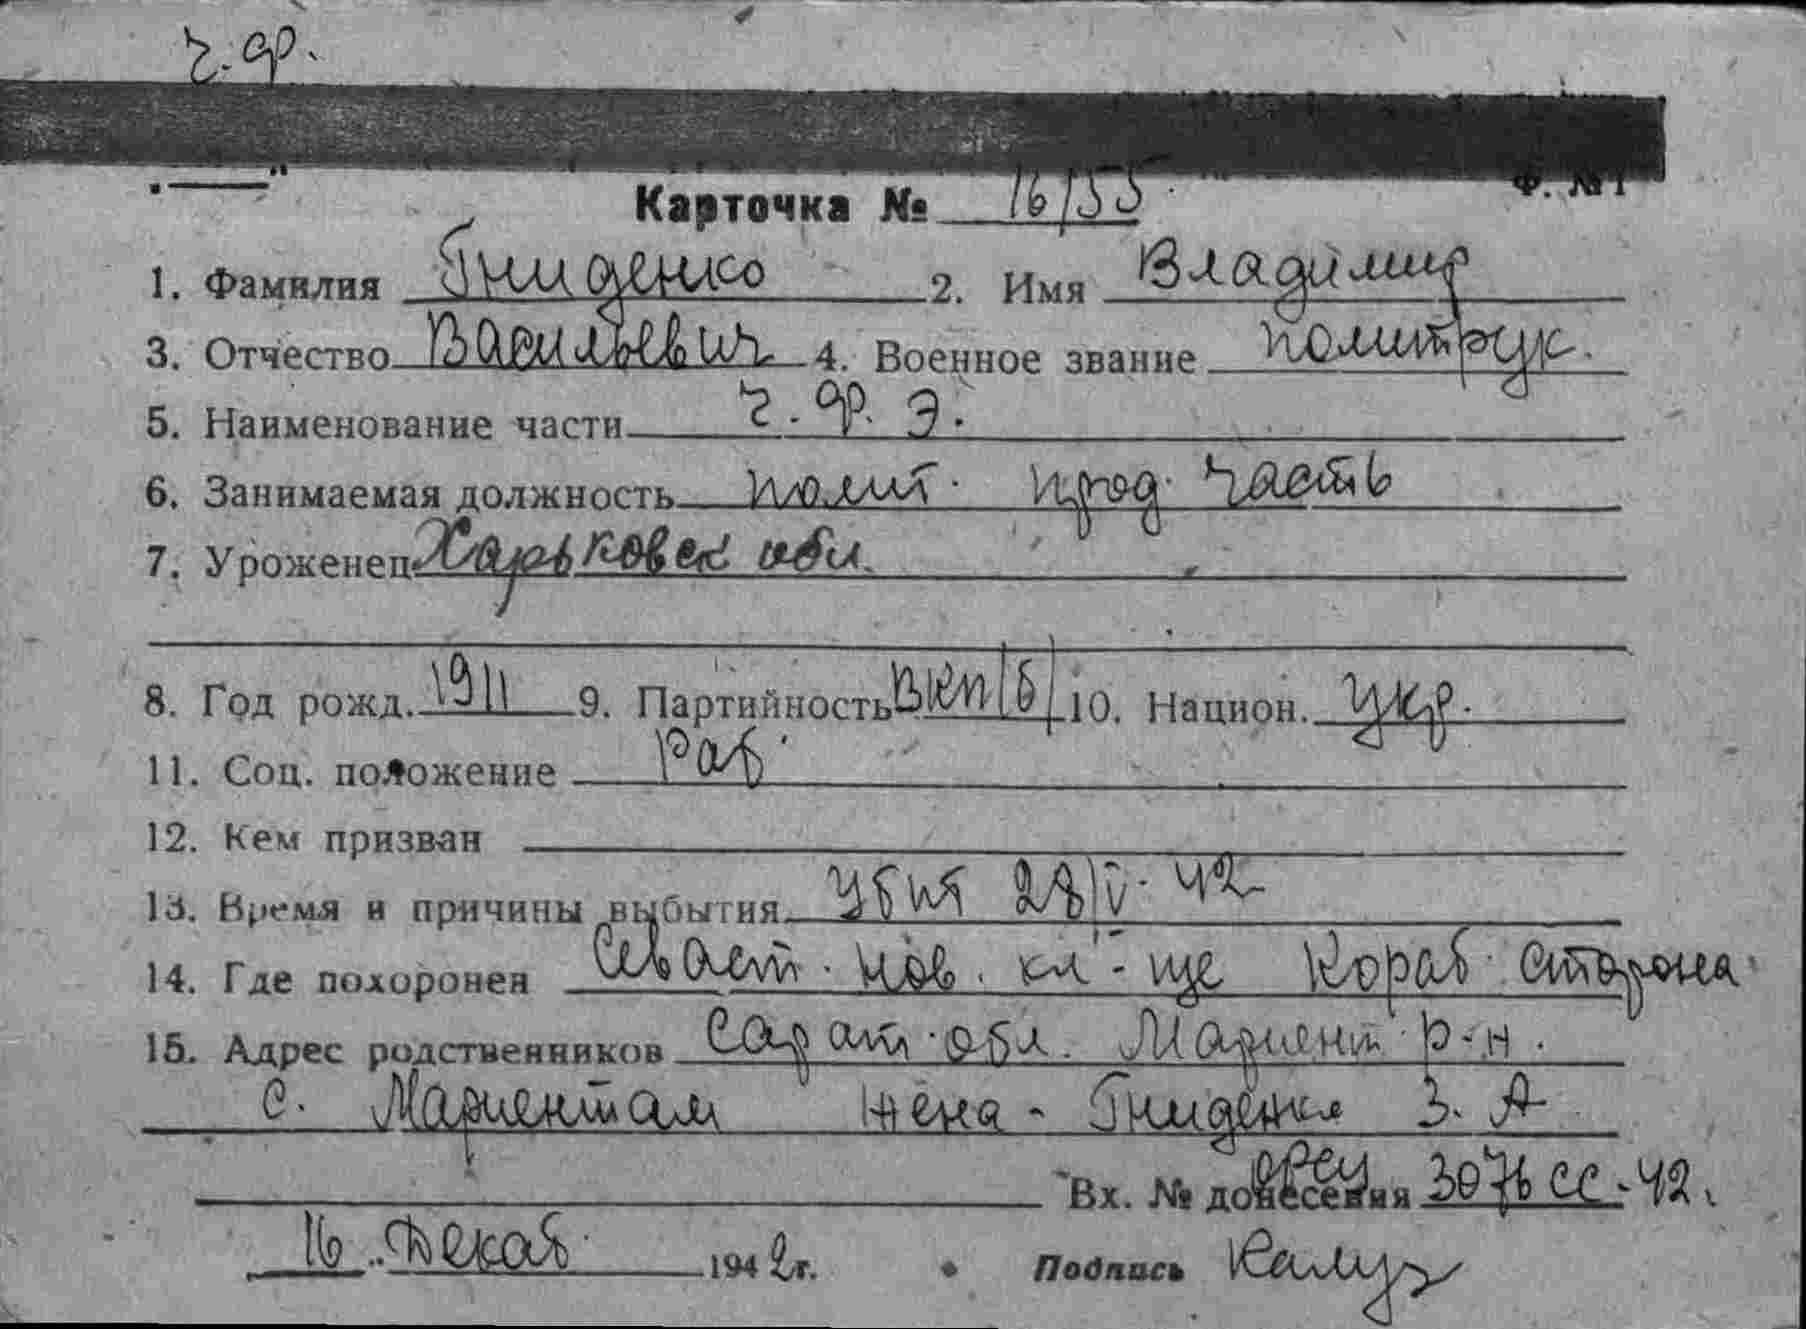 ч. ф.
Ф. № 1
Карточка № 16/55
1. Фамилия Гниденко 2. Имя Владимир
3. Отчество Васильевич 4. Военное звание политрук.
5. Наименование части ч. ф. Э.
6. Занимаемая должность полит. прод. часть
7. Уроженец Харьковск обл.
8. Год рожд. 1911 9. Партийность ВКП/б/ 10. Национ. Укр.
11. Соц. положение Раб.
12. Кем призван
13. Время и причины выбытия Убит 28/V. 42
14. Где похоронен Севаст. нов. кл-ще Кораб. сторона
15. Адрес родственников Сарат. обл. Мариент. р-н.
с. Мариентам жена - Гниденко З. А
Вх. № донесения 3076 сс - 42.
16 Декаб 1942 г. Подпись